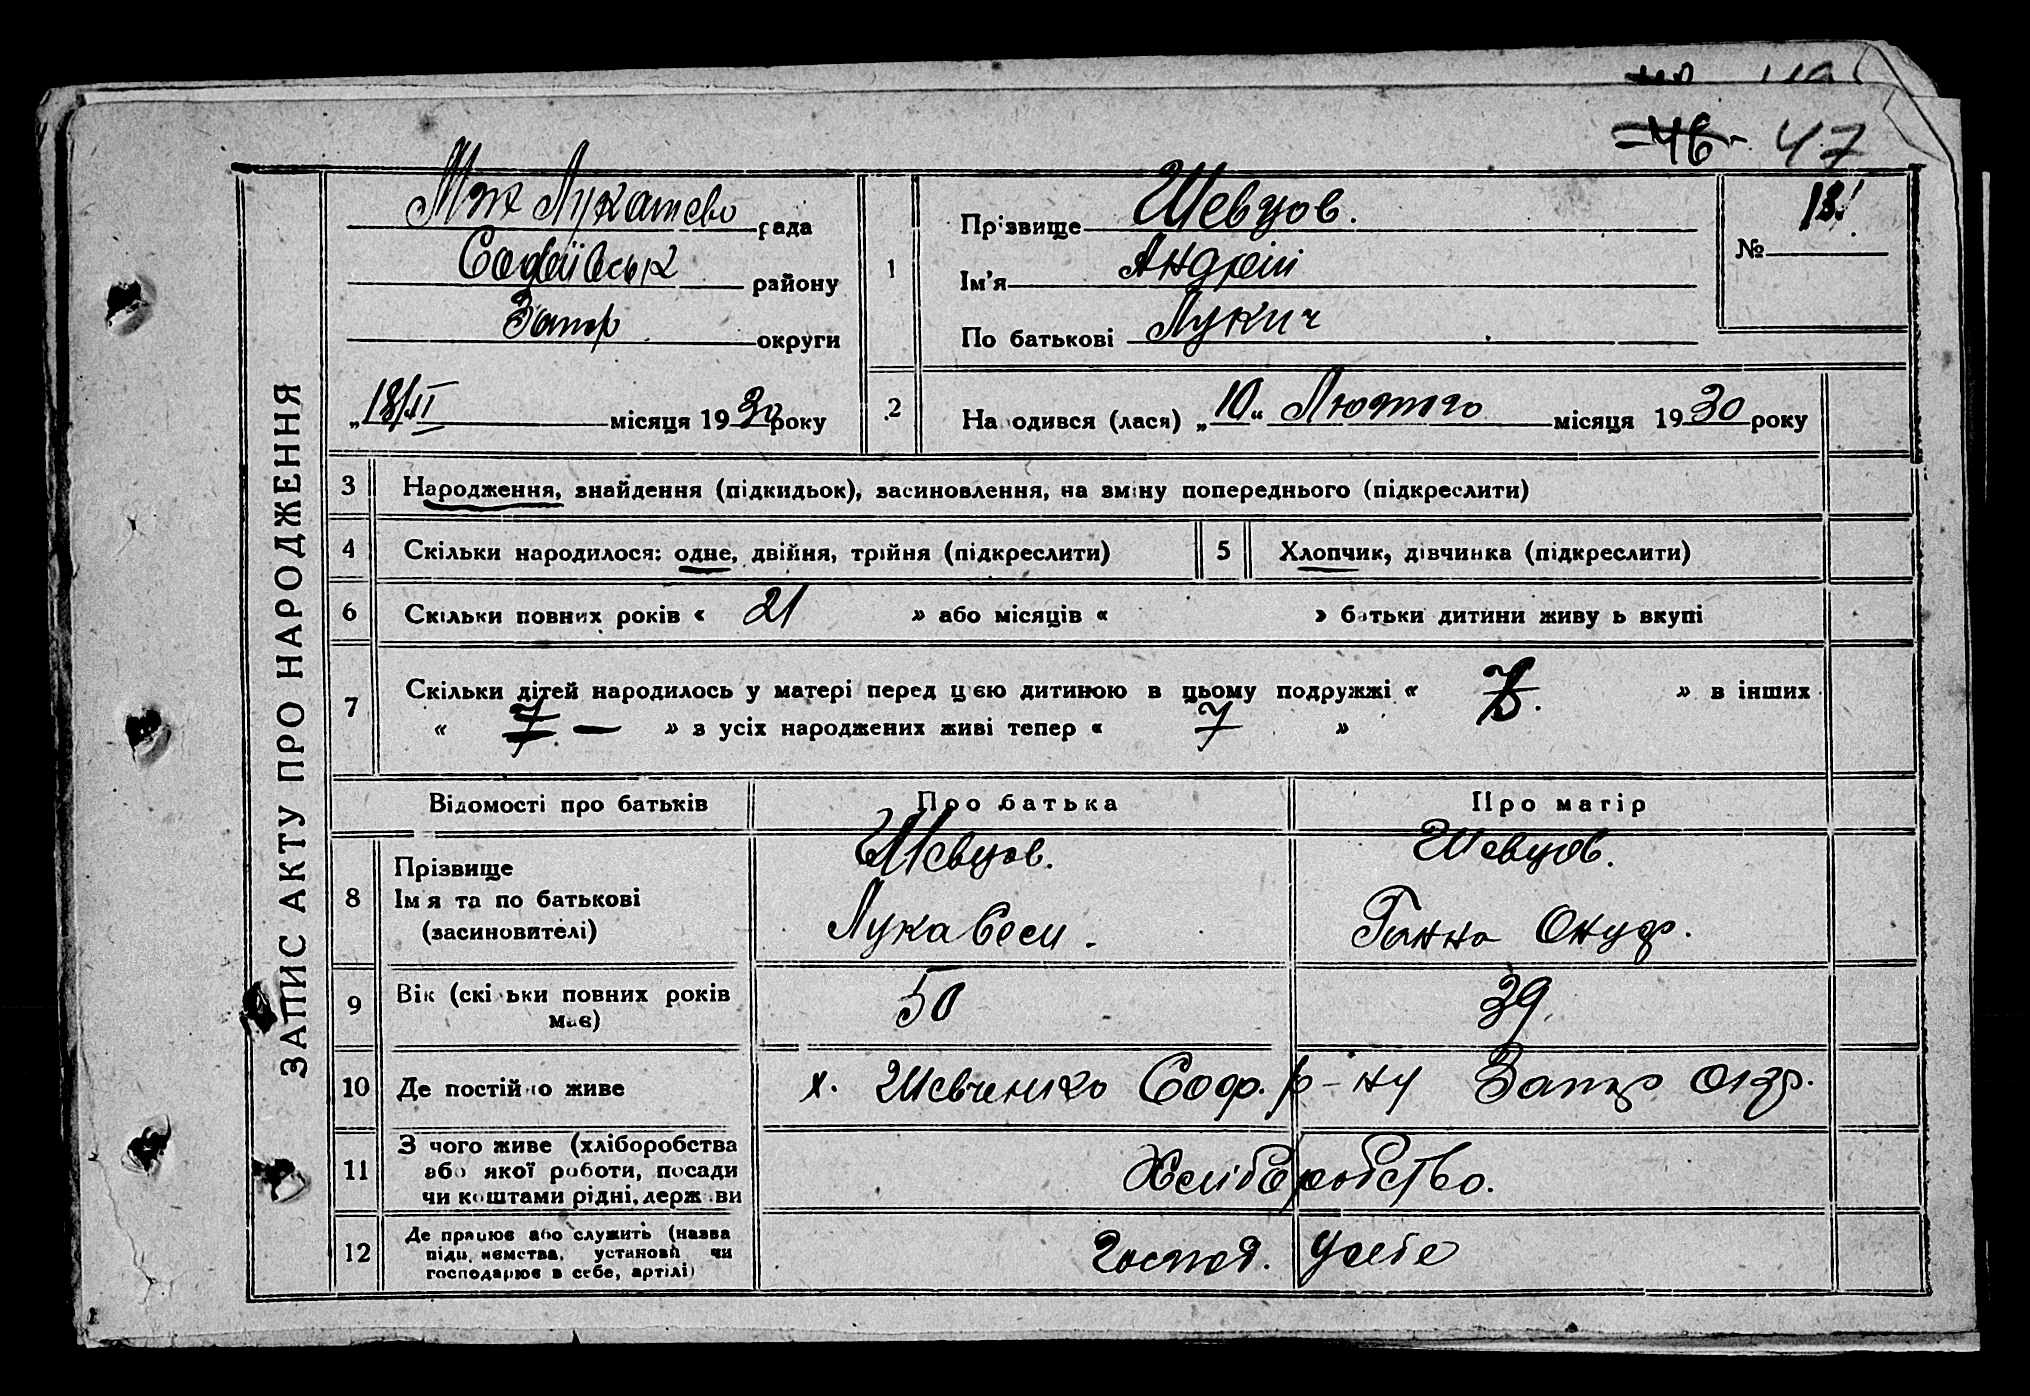 46 47
ЗАПИС АКТУ ПРО НАРОДЖЕННЯ
Лукашево рада
Софіївськ району
Запор округи
„18/II місяця 1930 року
1
Прізвище Шевцов.
Ім'я Андрій
По батькові Лукич
№ 13.
2
Народився (лася) „10“ Лютого місяця 1930 року
3 Народження, знайдення (підкидьок), засиновлення, на зміну попереднього (підкреслити)
4 Скільки народилося: одне, двійня, трійня (підкреслити) 5 Хлопчик, дівчинка (підкреслити)
6 Скільки повних років « 21 » або місяців « » батьки дитини живу ь вкупі
7 Скільки дітей народилось у матері перед цією дитиною в цьому подружжі « » в інших
« 7 — » з усіх народжених живі тепер « 7 »
Відомості про батьків Про батька Про матір
8 Прізвище Шевцов. Шевцов.
Ім я та по батькові
(засиновителі) Лука Ганна Онуф.
9 Вік (скільки повних років має) 50 39
10 Де постійно живе х. Шевченко Соф. р-ну Запор окр.
11 З чого живе (хліборобства
або якої роботи, посади
чи коштами рідні, держави Хліборобство.
12 Де працює або служить (назва
підприємства, установи чи
господарює в себе, артілі) Господ. у себе